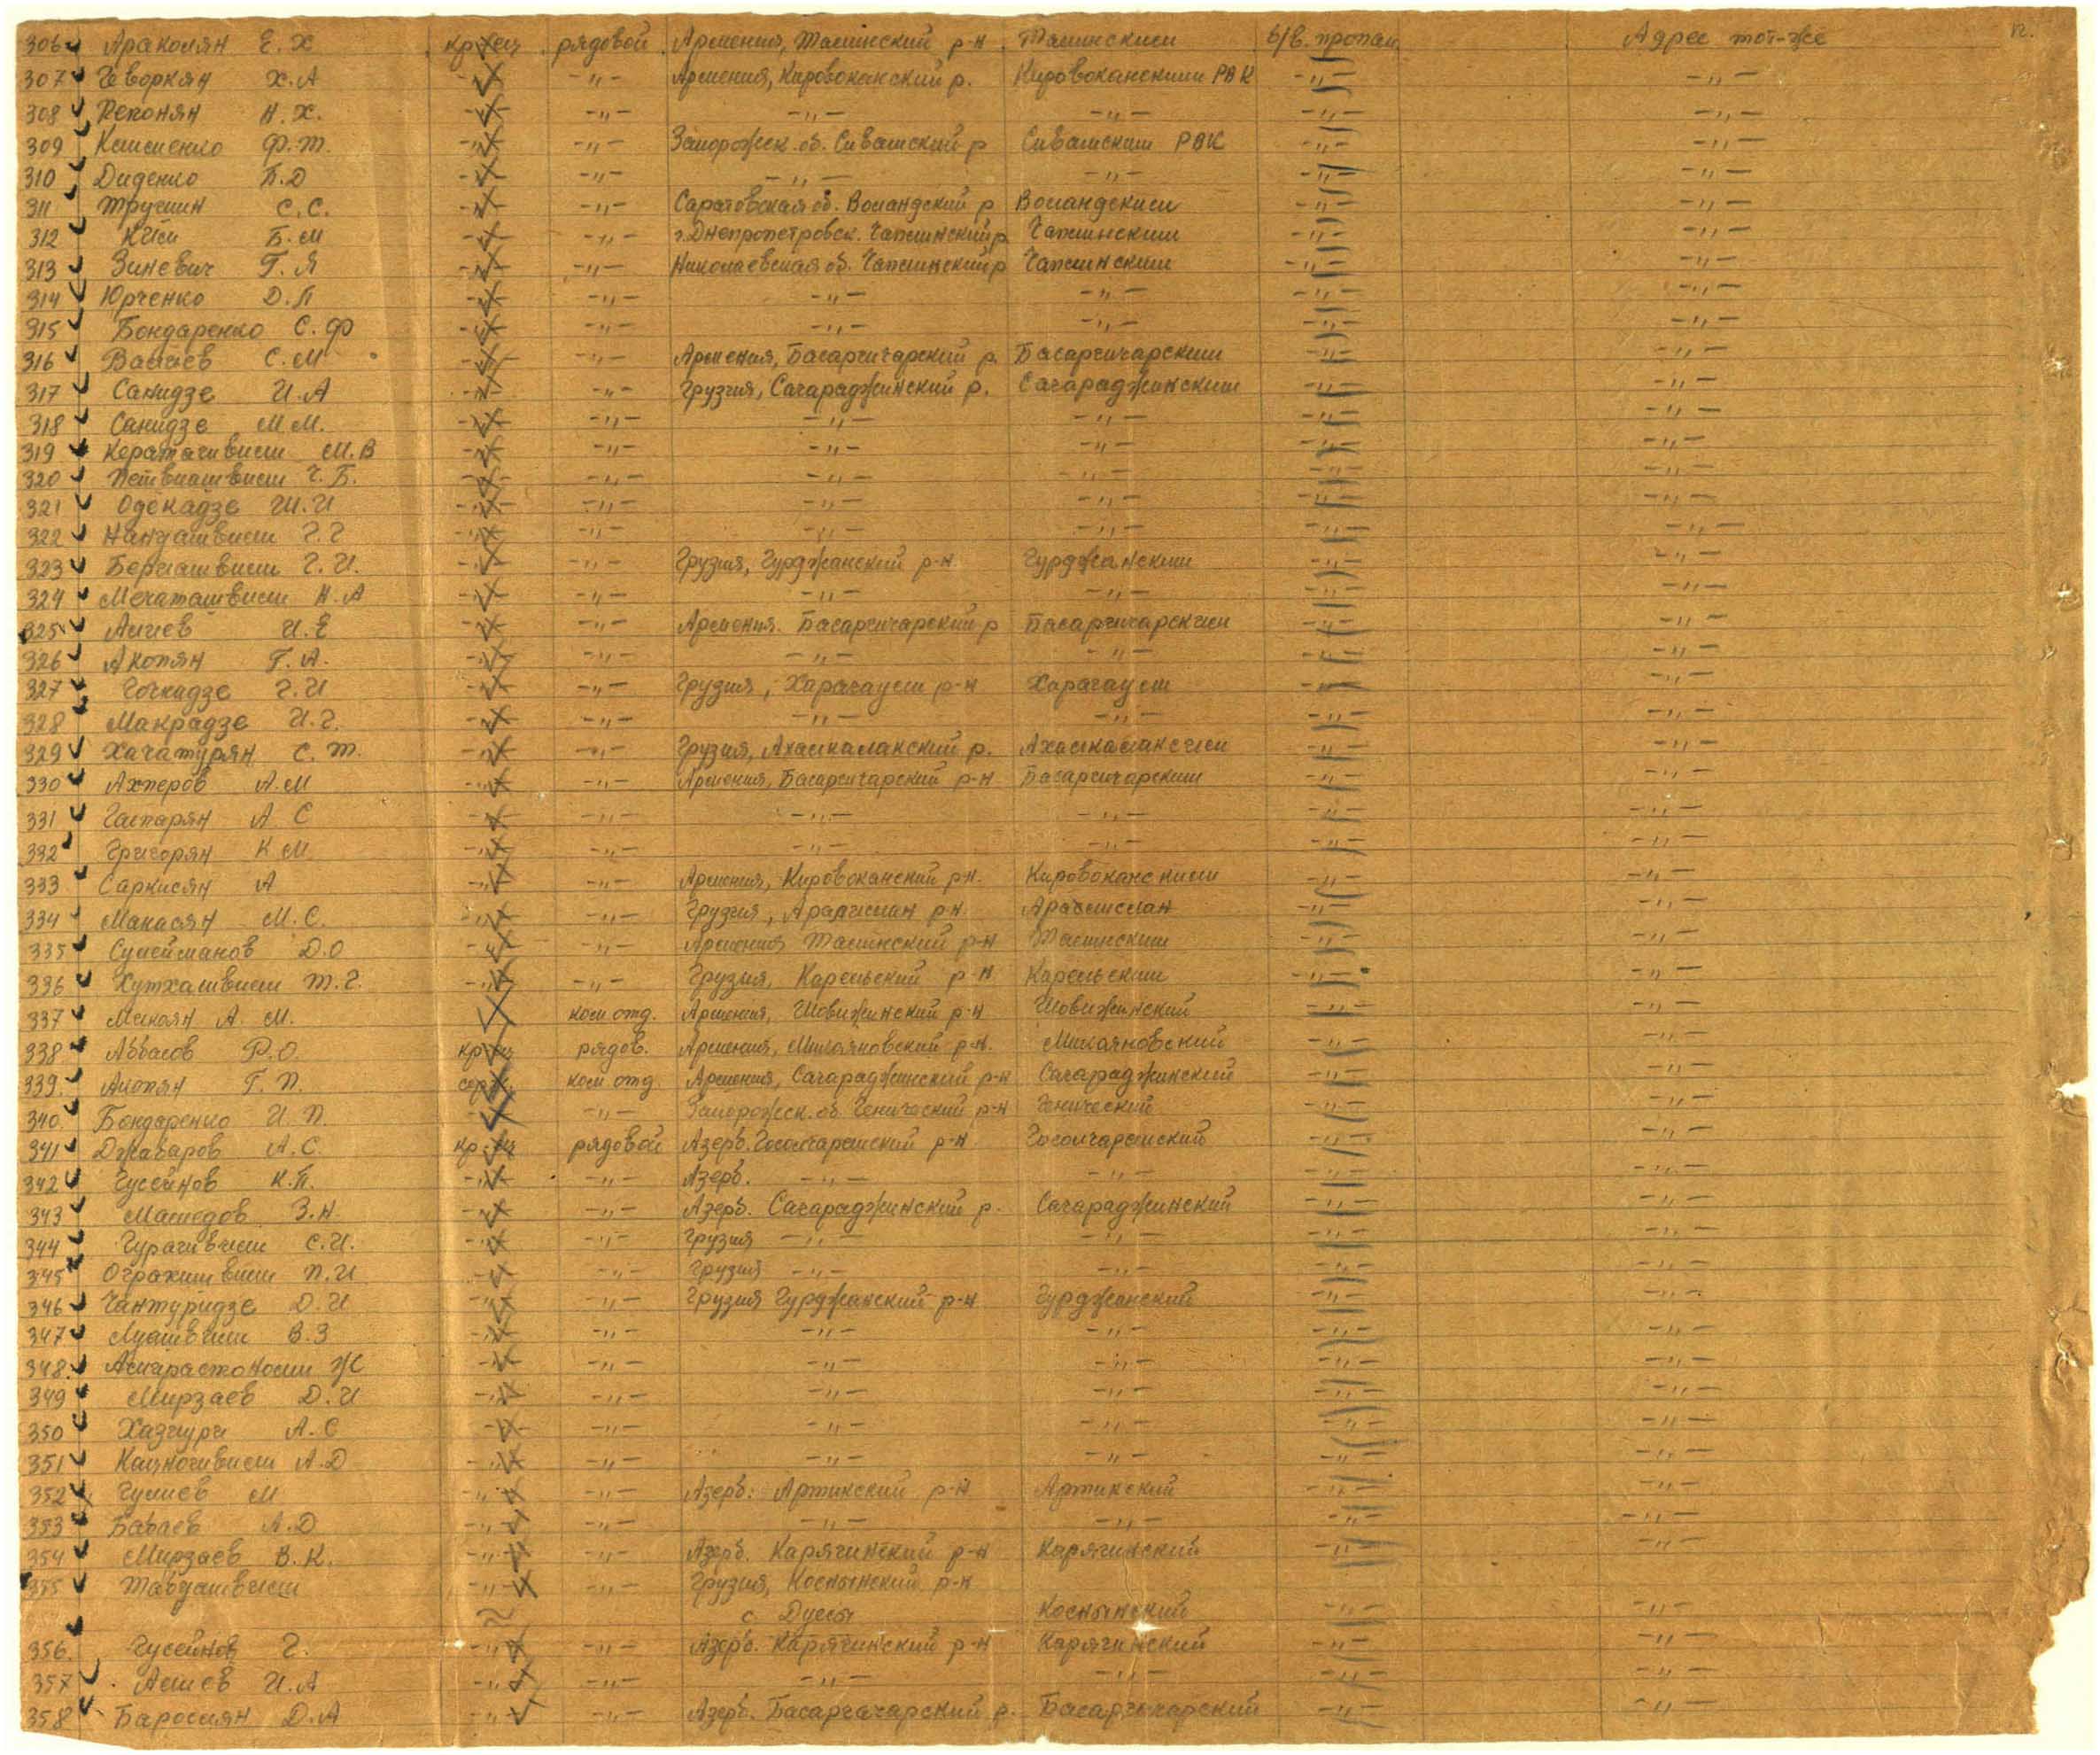 12.
306 Араколян Е.Х кр-ец рядовой Армения, Талинский р-н Талинский б/в. пропал Адрес тот-же
307 Геворкян Х.А -"- -"- Армения, Кировоканский р. Кировоканский РВК -"- -"-
308 Пепонян Н.Х. -"- -"- -"- -"- -"- -"-
309 Клименко Ф.Т. -"- -"- Запорожск. об. Сивашский р Сивашский РВК -"- -"-
310 Диденко П.Д -"- -"- -"- -"- -"- -"-
311 Трушин С.С. -"- -"- Саратовская об. Воландский р Воландский -"- -"-
312 Ким Б.М -"- -"- г. Днепропетровск. Чаплинский р Чаплинский -"- -"-
313 Зиневич Г.Я -"- -"- Николаевская об. Чаплинский р Чаплинский -"- -"-
314 Юрченко Д.П -"- -"- -"- -"- -"- -"-
315 Бондаренко С.Ф -"- -"- -"- -"- -"- -"-
316 Валиев С.М -"- -"- Армения, Басаргичарский р. Басаргичарский -"- -"-
317 Санидзе И.А -"- -"- Грузия, Сагараджинский р. Сагараджинский -"- -"-
318 Санидзе М.М. -"- -"- -"- -"- -"- -"-
319 М.В -"- -"- -"- -"- -"- -"-
320 Петвиашвили Г.Б. -"- -"- -"- -"- -"- -"-
321 Оденадзе Ш.И -"- -"- -"- -"- -"- -"-
322 Нандашвили Г.Г -"- -"- -"- -"- -"- -"-
323 Бериашвили Г.И. -"- -"- Грузия, Гурджанский р-н Гурджанский -"- -"-
324 Мегаташвили Н.А -"- -"- -"- -"- -"- -"-
325 Алиев И.Е -"- -"- Армения. Басаргичарский р Басаргичарский -"- -"-
326 Акопян Г.А. -"- -"- -"- -"- -"- -"-
327 Гочкадзе Г.И -"- -"- Грузия, Харагаули р-н Харагаули -"- -"-
328 Макрадзе И.Г. -"- -"- -"- -"- -"- -"-
329 Хачатурян С.Т. -"- -"- Грузия, Ахалкалакский р. Ахалкалакский -"- -"-
330 Ахперов А.М -"- -"- Армения, Басаргичарский р-н Басаргичарский -"- -"-
331 Гаспарян А С -"- -"- -"- -"- -"- -"-
332 Григорян К М -"- -"- -"- -"- -"- -"-
333 Саркисян А -"- -"- Армения, Кировоканский р-н. Кировоканский -"- -"-
334 Манасян М.С. -"- -"- Грузия, р-н. -"- -"-
335 Сулейманов Д.О -"- -"- Армения Талинский р-н Талинский -"- -"-
336 Хутхашвили Т.Г. -"- -"- Грузия, Карельский р-н Карельский -"- -"-
337 Мелоян А.М. ком. отд. Армения, Шовижинский р-н Шовижинский -"- -"-
338 Аббасов Р.О. кр-ец рядов. Армения, Микояновский р-н. Микояновский -"- -"-
339. Акопян Г.П. серж. ком. отд. Армения, Сагараджинский р-н Сагараджинский -"- -"-
340. Бондаренко И.П. -"- Запорожск. об. Генический р-н Генический -"- -"-
341 Джабаров А.С. кр-ец рядовой Азерб. р-н -"- -"-
342 Гусейнов К.П. -"- -"- Азерб. -"- -"- -"- -"-
343 Мамедов З.Н. -"- -"- Азерб. Сагараджинский р. Сагараджинский -"- -"-
344 Гурагивили С.И. -"- -"- Грузия -"- -"- -"- -"-
345 П.И -"- -"- Грузия -"- -"- -"- -"-
346 Чантуридзе Д.И -"- -"- Грузия Гурджанский р-н Гурджанский -"- -"-
347 Луашвили В.З -"- -"- -"- -"- -"- -"-
348. Ж -"- -"- -"- -"- -"- -"-
349 Мирзаев Д.И -"- -"- -"- -"- -"- -"-
350 Хазиури А.С -"- -"- -"- -"- -"- -"-
351 А.Д -"- -"- -"- -"- -"- -"-
352 Гулиев М -"- -"- Азерб: Артикский р-н Артикский -"- -"-
353 Бабаев А.Д -"- -"- -"- -"- -"- -"-
354 Мирзаев В.К. -"- -"- Азерб. Карягинский р-н Карягинский -"- -"-
355 Тавдашвили -"- -"- Грузия, р-н
с. -"- -"-
356. Гусейнов Г. -"- -"- Азерб. Карягинский р-н Карягинский -"- -"-
357 Алиев И.А -"- -"- -"- -"- -"- -"-
358 Баросиян Д.А -"- -"- Азерб. Басаргачарский р. Басаргичарский -"- -"-